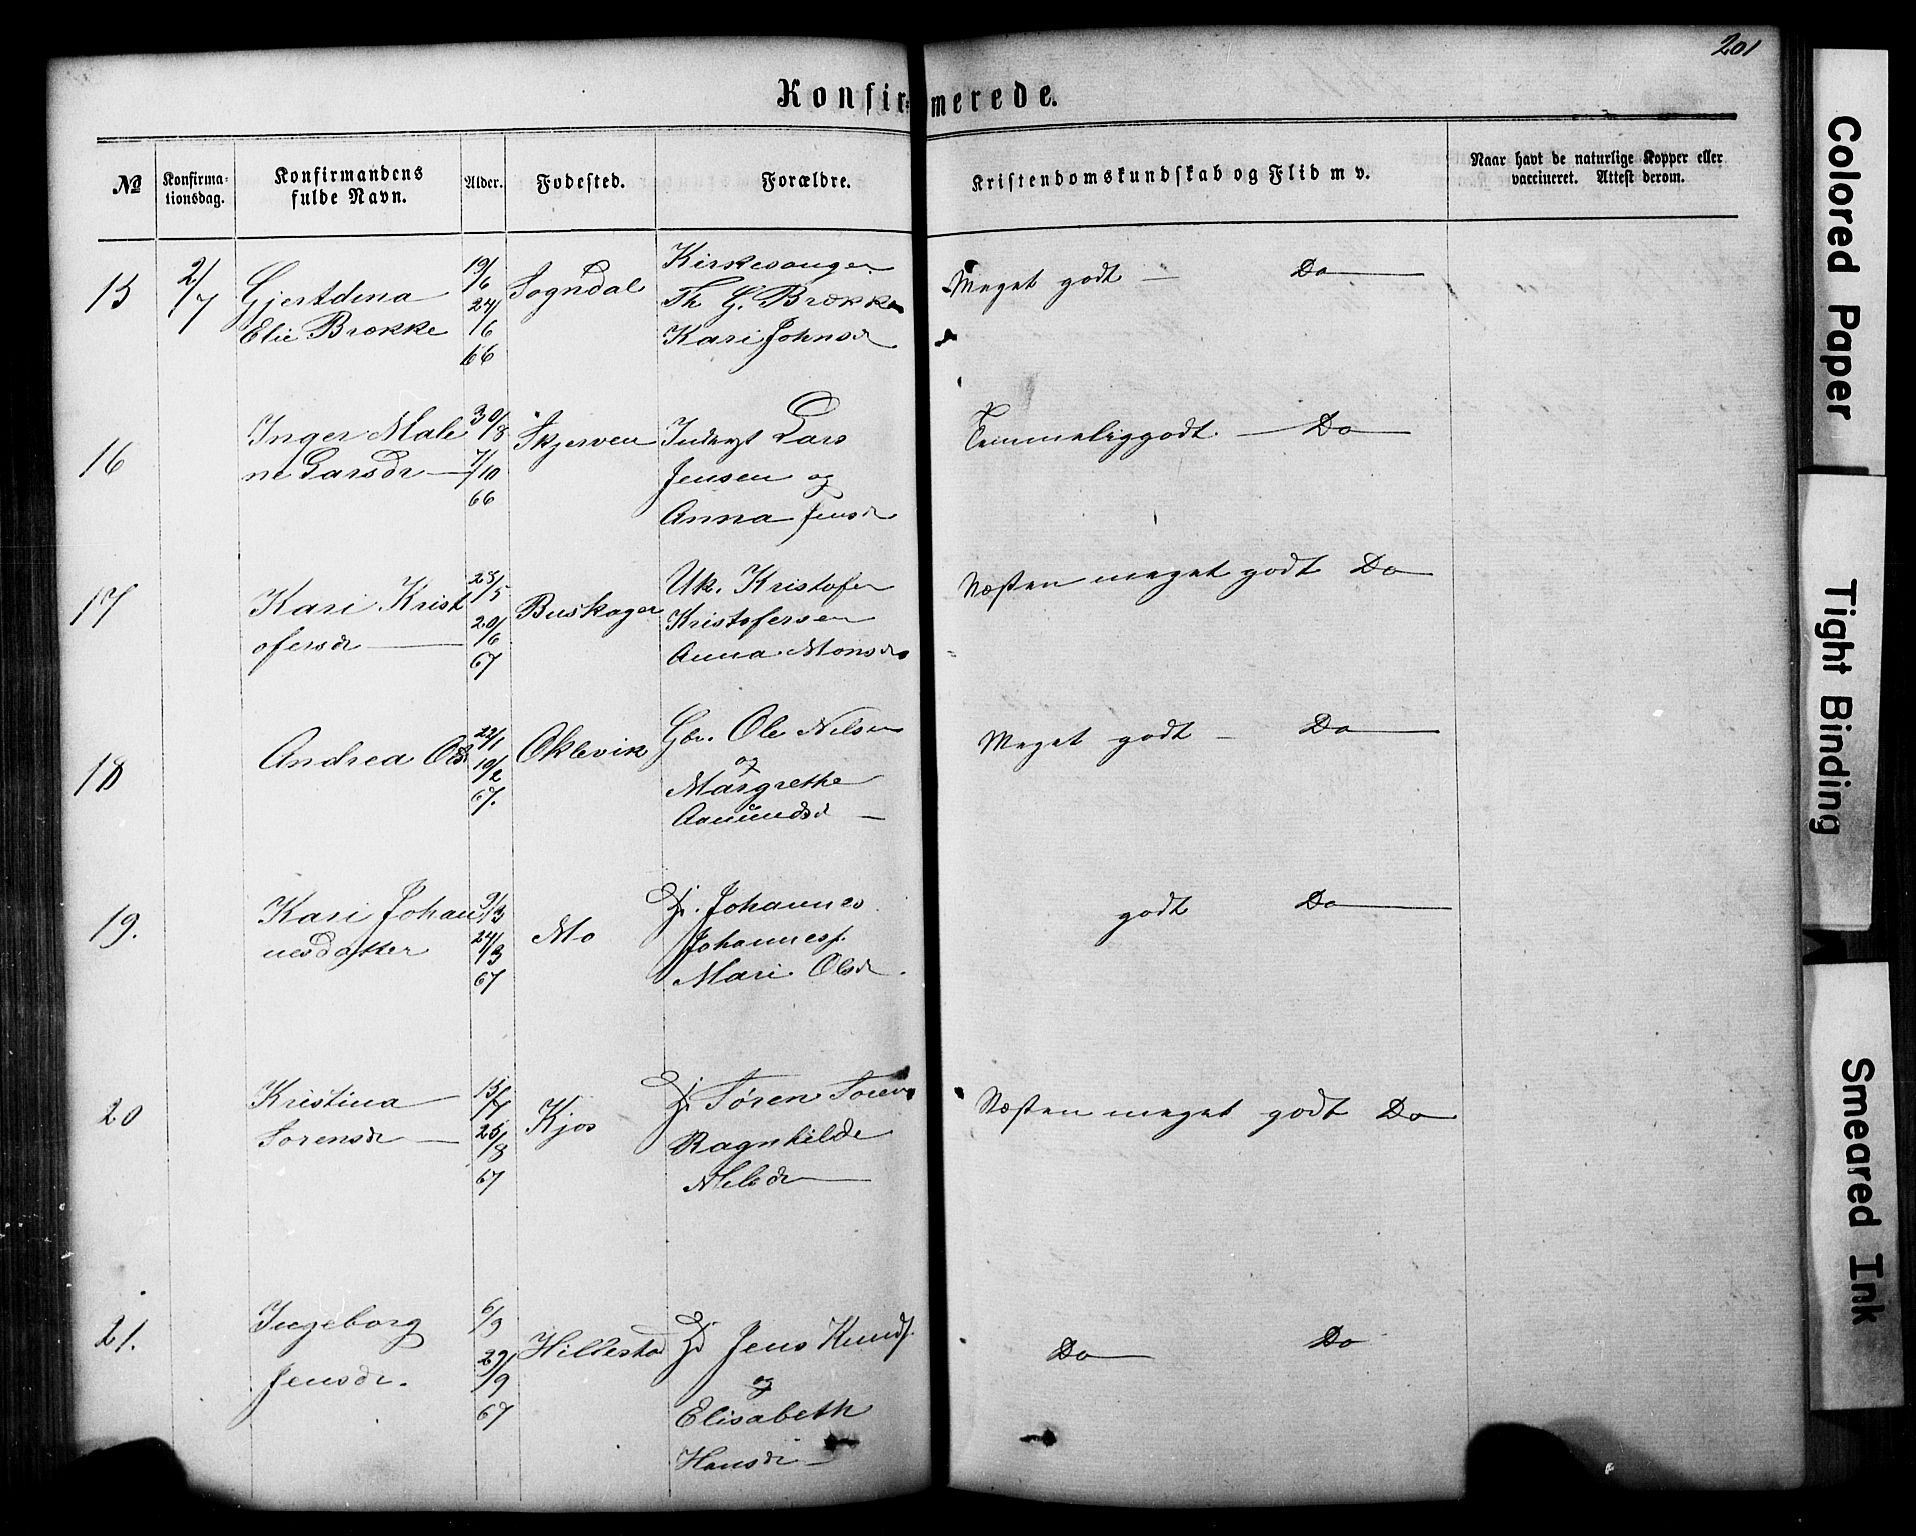 201
Konfirmerede.
№
Konfirma-
tionsdag.
Konfirmandens
fulde Navn.
Alder.
Fodested.
Forældre.
Kristendomskundskab og Flid m v.
Naar havt de naturlige Kopper eller
vaccineret. Attest derom.
15
2/7
Gjertdina
Elie Brække
19/6
24/6
66
Sogndal
Kirkesanger
Th G. Brække
Kari Johnsd
Meget godt — Do
16
Inger Male
ne Larsdr
30/8
7/10
66
Skjerven
Inderst Lars
Jensen og
Anna Jensd
Temmelig godt. — Do
17
Kari Krist
ofersdr
23/5
20/6
67
Buskager
Uk. Kristofer
Kristofersen
Anna Monsdr
Næsten meget godt Do
18
Andrea Olsd
22/1
19/2
67.
Oklevik
Gbr. Ole Nilsen
og
Margrethe
Aamundsd
Meget godt — Do
19.
Kari Johan
nesdatter
3/3
24/3
67
Mo
Johannes
Johannesf.
Mari Olsdr.
godt Do
20
Kristina
Sorensdr
15/7
25/8
67
Kjos
Søren Soren
Ragnhilde
Nelsdr
Næsten meget godt Do
21.
Ingeborg
Jensdr.
6/9
29/9
67
Hillestad
Jens Knudf.
og
Elisabeth
Hansdr
Do Do
Colored Paper
Tight Binding
Smeared Ink